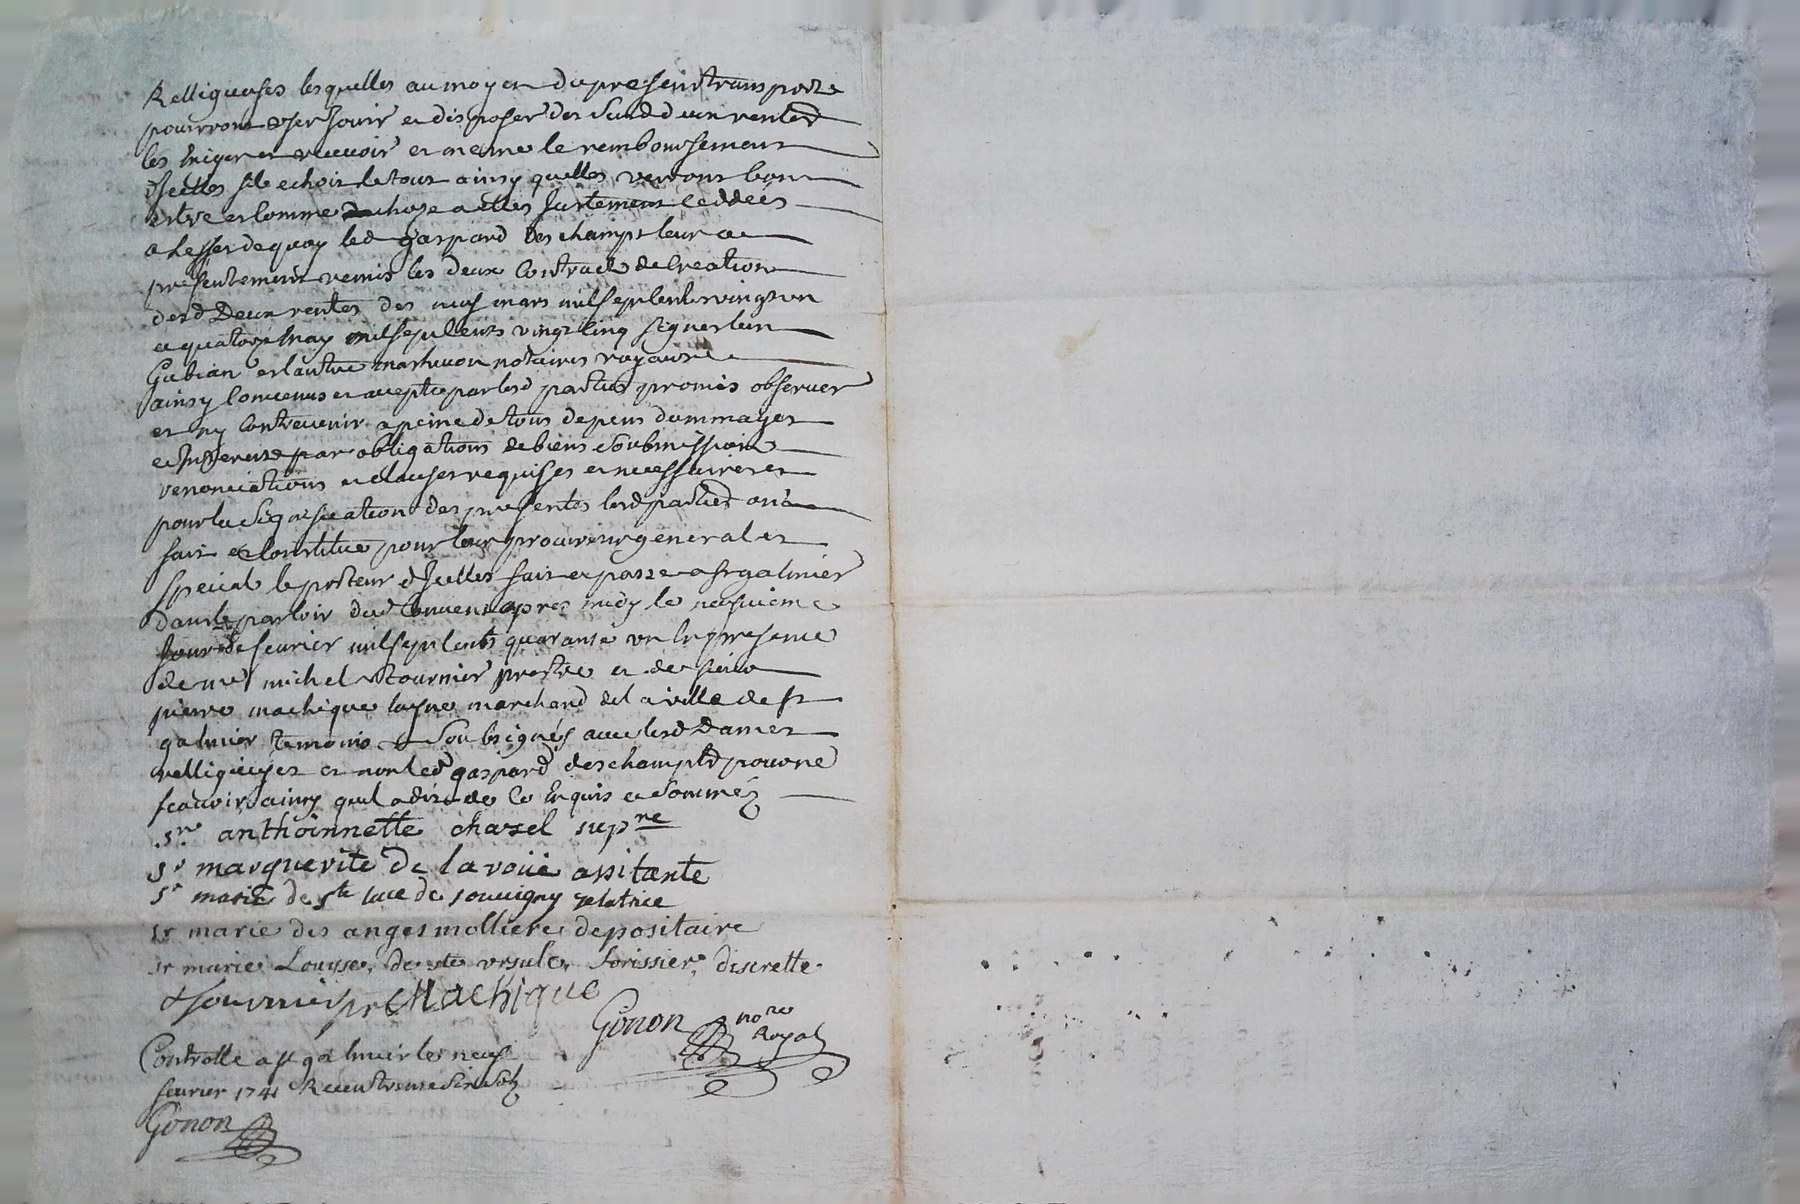 Relligieuses lesquelles au moyen du present transport
pourront user Jouir et disposer desd deux rentes
les Exiger et recevoir et meme le remboursement
d'Jcelles sil echoit le tout ainsy quelles verront bon
estre et Comme de chose a elles Justement Ceddées
a Leffet de quoy led gaspard Des champs leur a
presentement remis les deux Contracts de Creation
desd Deux rentes des neuf mars mil sept Cents vingt un
et quatorze may mil sept Cents vingt Cinq signes lun
Gubian et lautre notaires royaux
ainsy Convenus et accepté par lesd parties promis observer
et ny Contrevenir a peine de tous depens dommages
et Jnterets par obligations de biens soubmissions
renonciations et clauses requises et necessaires et
pour la signification des presentes lesd parties ont
fait et Constitué pour leur procureur general et
special le porteur d'Jcelles fait et passé a st galmier
dans le parloir dud Couvent apres midy le neufvieme
Jour de fevrier mil sept Cents quarante un En presence
de me michel tournier prestre et de sieur
pierre machique marchand de la ville de st
galmier temoins soubsignés avec lesd Dames
relligieuses et non led gaspard deschamps pour ne
scavoir ainsy quil a dit de Ce Enquis et sommé
sr anthoinnette chazel supre
sr marguerite de la voüe assitante
sr marie de ste luce de souvigny zelatrice
sr marie des anges molliere depositaire
sr marie Louyse de ste ursule forissier discrette
tournier ptre Machique
Gonon nore
Royal
Controlle a st galmier les neuf
fevrier 1741 Receu
Gonon